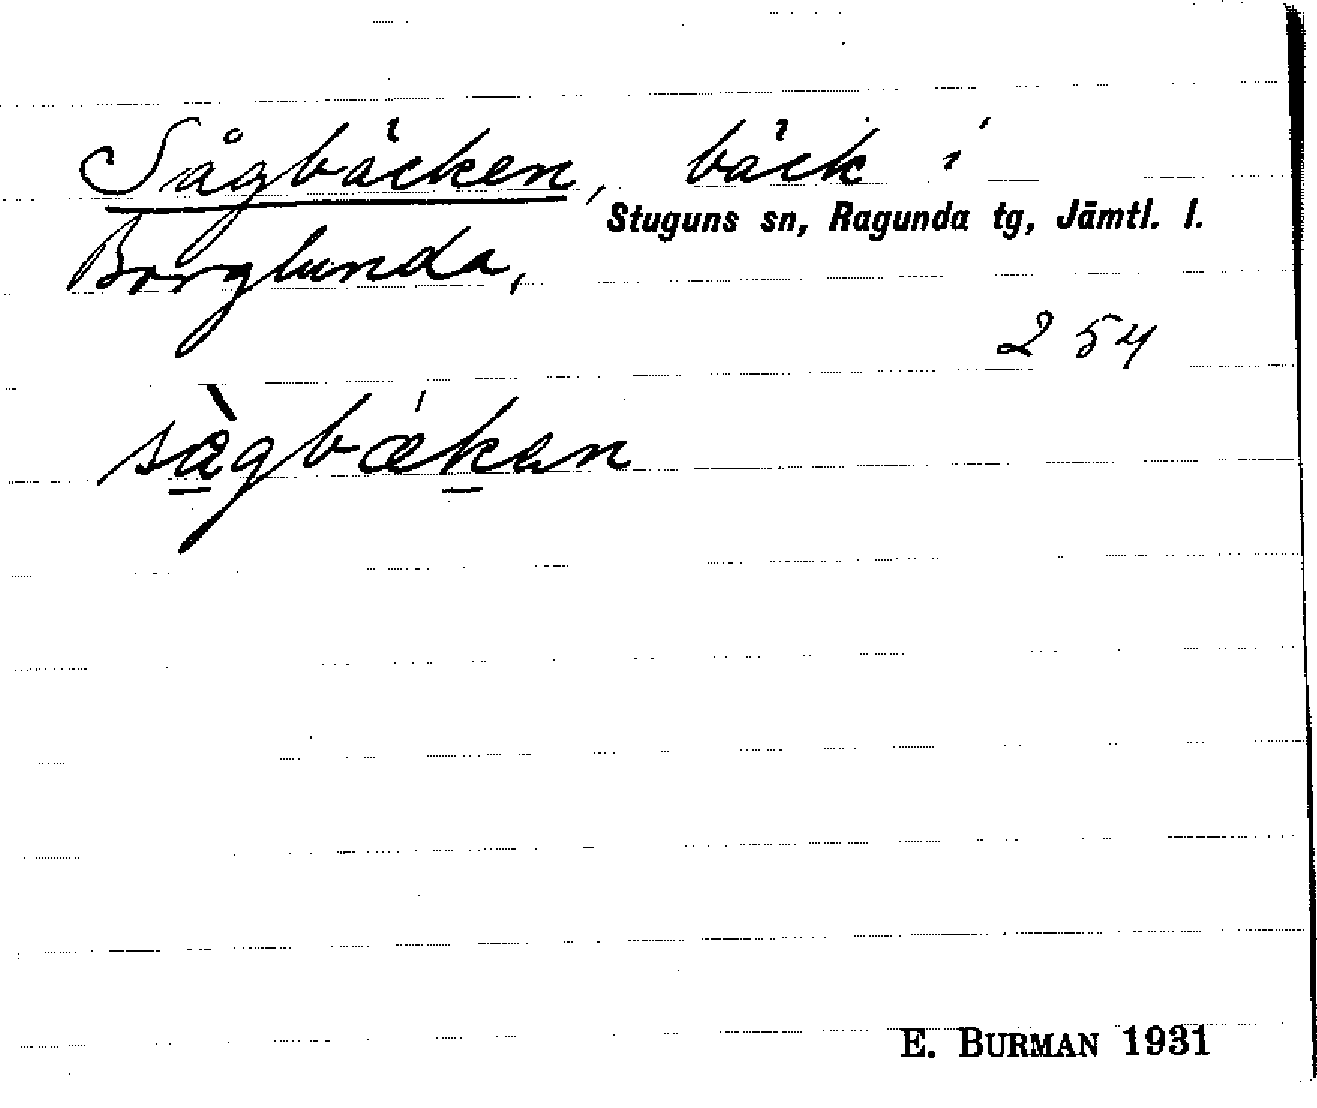 Sågbäcken, bäck i
Stuguns sn, Ragunda tg, Jämtl. l.
Borglunda,
254
sàgbækan
E. BURMAN 1931